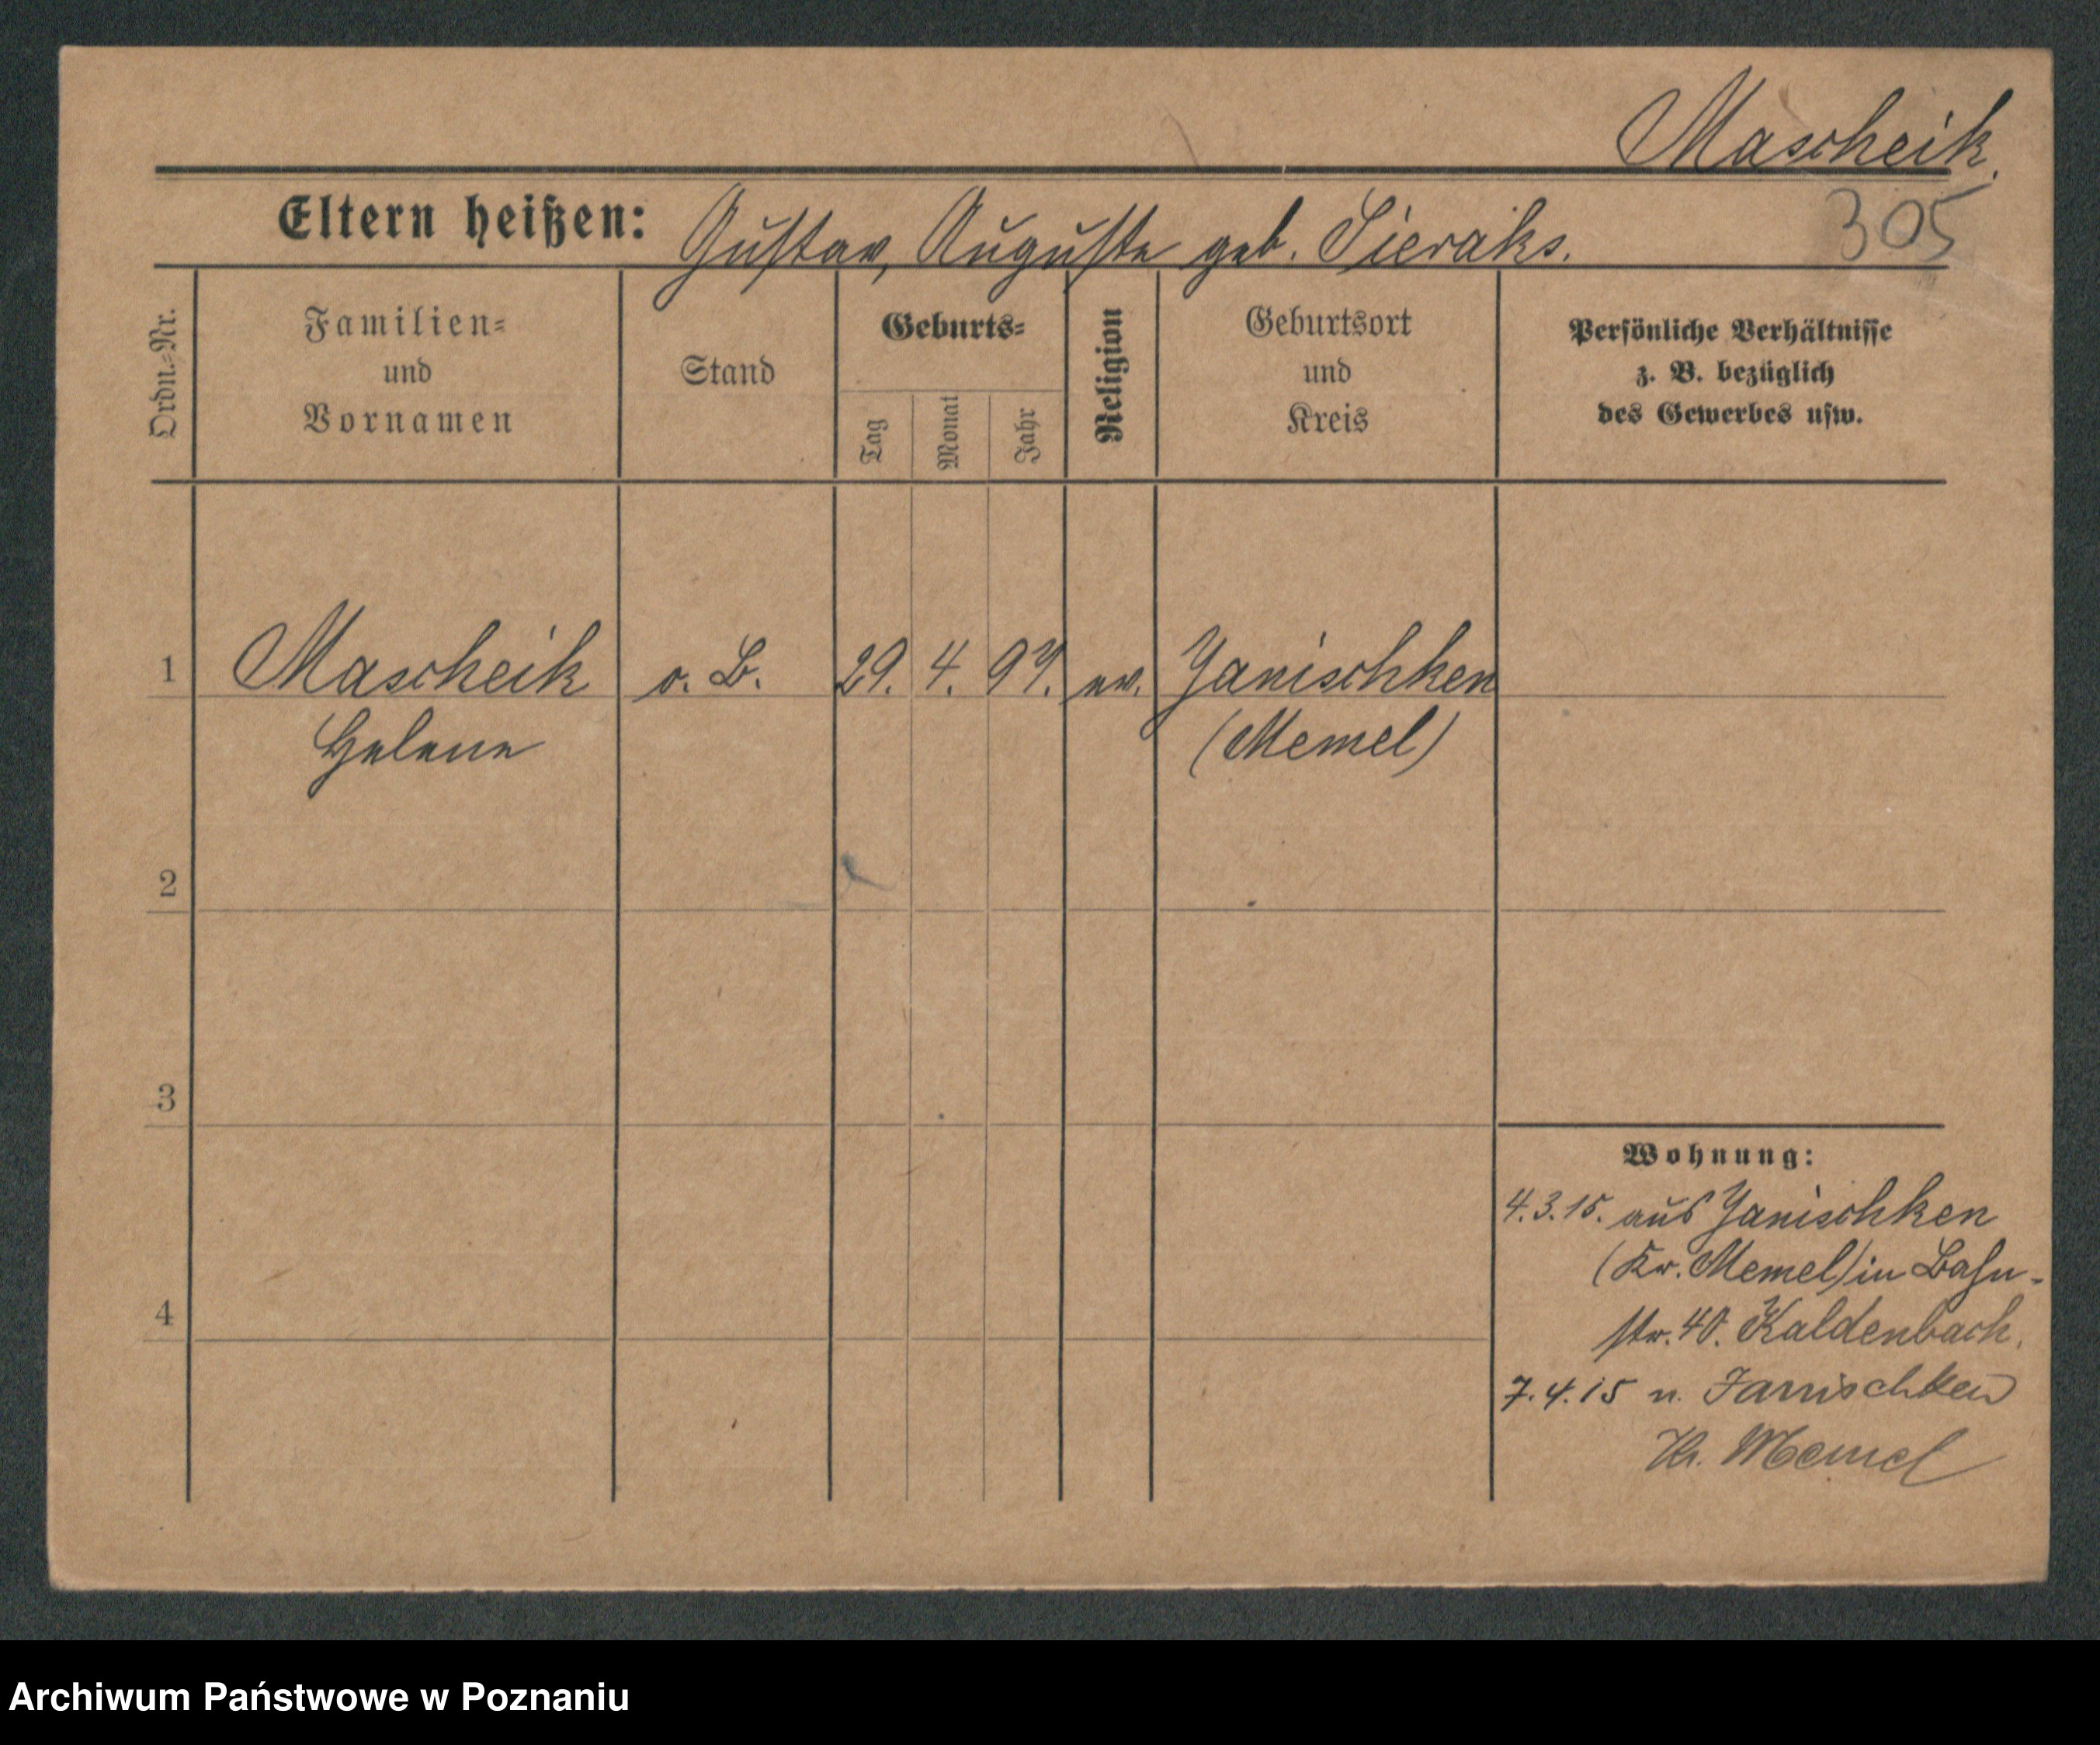 Mascheik.
305
Eltern heißen: Gustav, Auguste geb. Sieraks.
Ordn.-Nr.
Familien-
und
Vornamen
Stand
Geburts-
Tag
Monat
Jahr
Religion
Geburtsort
und
Kreis
Persönliche Verhältnisse
z. B. bezüglich
des Gewerbes usw.
1 Mascheik o. B. 29. 4. ev. Janischken
Helene (Memel)
2
3
4
Wohnung:
4.3.15. aus Janischken
(Kr. Memel) in Bahn-
str. 40. Kaldenbach.
7.4.15 n. Janischken
Kr. Memel
Archiwum Państwowe w Poznaniu